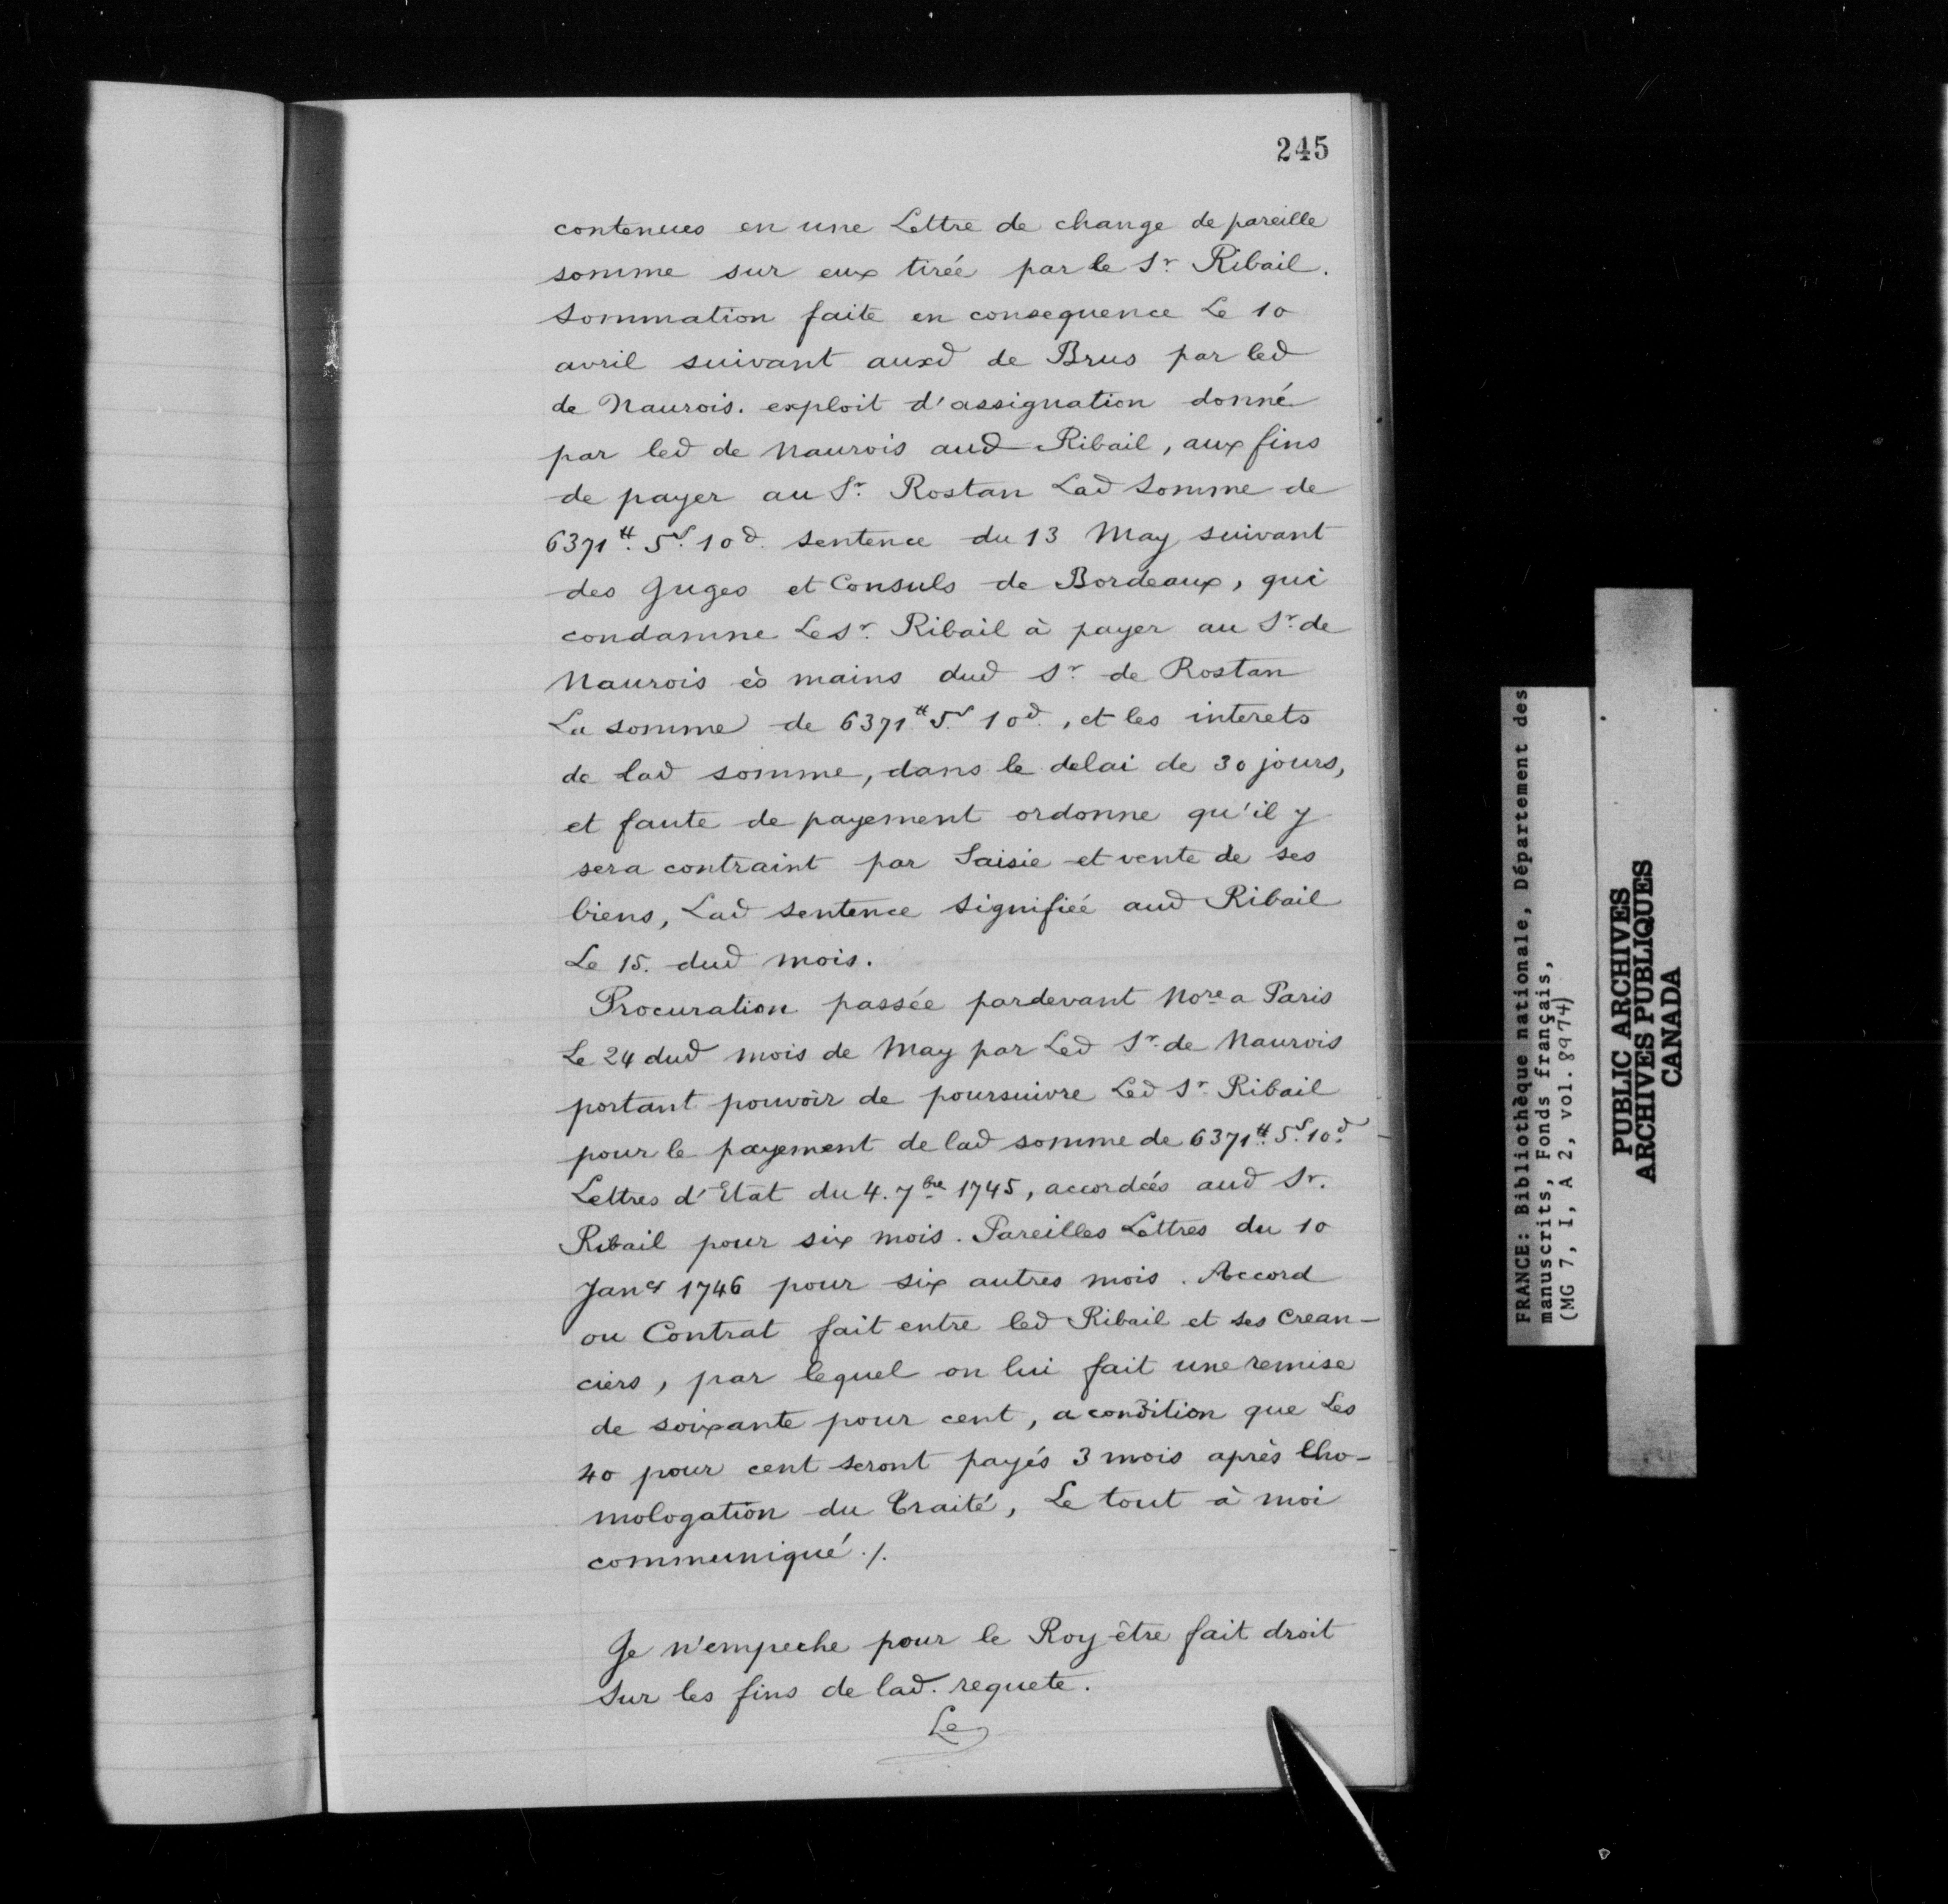 245
contenues en une Lettre de change de pareille
somme sur eux tirée par le Sr Ribail.
Sommation faite en consequence Le 10
avril suivant auxd de Brus par led
de Naurois. exploit d'assignation donné
par led de Naurois aud Ribail, aux fins
de payer au Sr. Rostan Lad Somme de
6371tt. 5s. 10d. sentence du 13 May suivant
des Juges et Consuls de Bordeaux, qui
condamne Le sr. Ribail à payer au Sr. de
Naurois ès mains dud Sr. de Rostan
La somme de 6371tt 5s 10d., et les interets
de lad somme, dans le delai de 30 jours,
et faute de payement ordonne qu'il y
sera contraint par Saisie et vente de ses
biens, Lad sentence signifiée aud Ribail
Le 15. dud mois.
Procuration passée pardevant Nore a Paris
Le 24 dud mois de May par Led Sr. de Naurois
portant pouvoir de poursuivre Led Sr. Ribail
pour le payement de lad somme de 6371tt. 5s. 10d.
Lettres d'Etat du 4. 7bre 1745, accordées aud Sr.
Ribail pour six mois. Pareilles Lettres du 10
Janer 1746 pour six autres mois. Accord
ou Contrat fait entre led Ribail et ses Crean-
ciers, par lequel on lui fait une remise
de soixante pour cent, a condition que Les
40 pour cent seront payés 3 mois après lho-
mologation du Traité, Le tout à moi
communiqué ./.
Je n'empeche pour le Roy être fait droit
sur les fins de lad. requete.
Le
FRANCE: Bibliothèque nationale, Département des
manuscrits, Fonds français,
(MG 7, I, A 2, vol. 8974)
PUBLIC ARCHIVES
ARCHIVES PUBLIQUES
CANADA